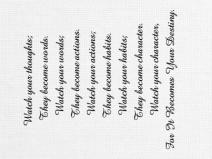 Watch your thoughts;
They become words.
Watch your words;
They become actions.
Watch your actions;
They become habits.
Watch your habits;
They become character.
Watch your character,
For It Becomes Your Destiny.